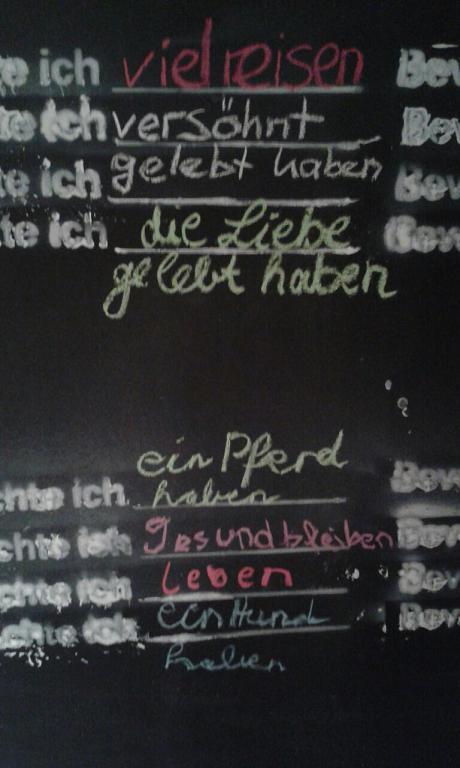 te ich viel reisen Bev
te ich versöhnt Bev
gelebt haben
te ich Bev
te ich die Liebe Bev
gelebt haben
ein Pferd
chte ich haben Bev
chte ich Gesund bleiben Bev
chte ich Leben Bev
chte ich ein Hund Bev
haben